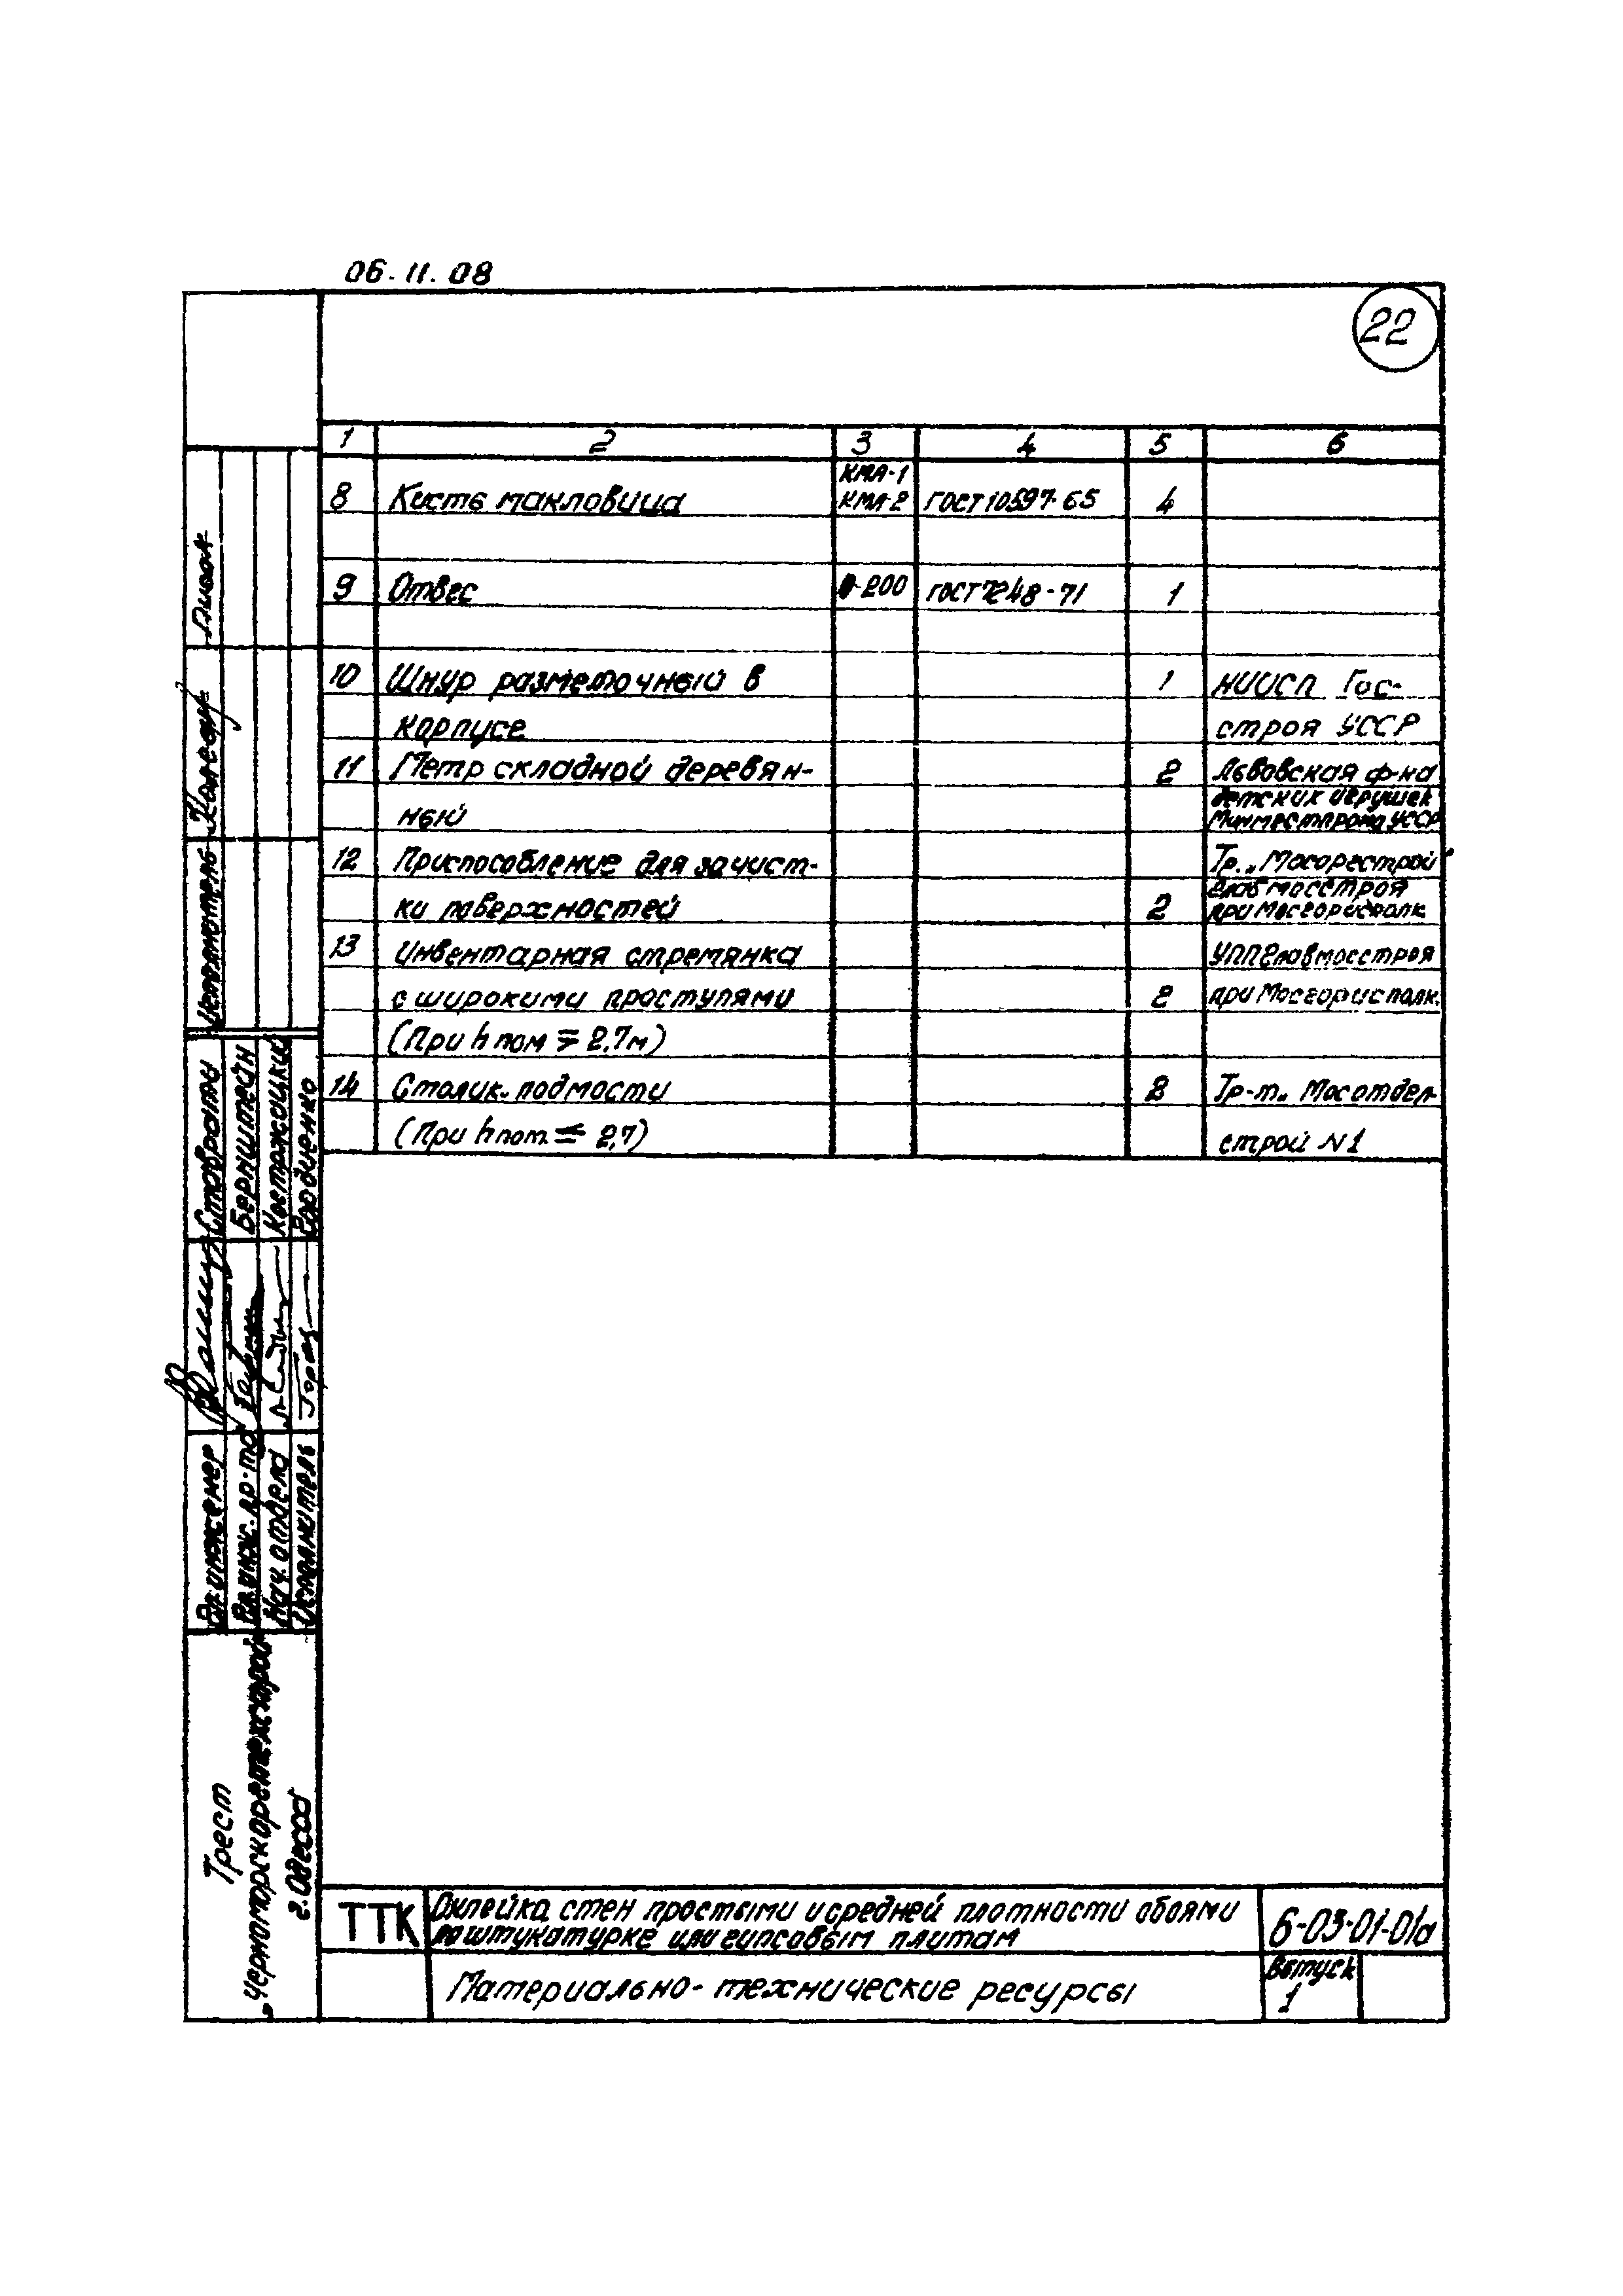 06.11.08
22
1 2 3 4 5 6
КМА-1
8 Кисть макловица КМА-2 ГОСТ 10597-65 4
9 Отвес 0-200 ГОСТ 7248-71 1
10 Шнур разметочный в 1 НИИСП Гос-
корпусе строя УССР
11 Метр складной деревян- 2 Львовская ф-ка
ный детских игрушек
Минместпрома УССР
12 Приспособление для зачист- Тр. „Мосоргстрой"
ки поверхностей 2 Главмосстроя
при Мосгорисполк.
13 Инвентарная стремянка УПП Главмосстроя
с широкими проступями 2 при Мосгорисполк.
(При h пом ⩾ 2,7м)
14 Столик-подмости 2 Тр-т. Мосотдел-
(При h пом ≤ 2,7) строй N1
ТТК Оклейка стен простыми и средней плотности обоями
по штукатурке или гипсовым плитам
6-03-01-01а
Материально-технические ресурсы
Выпуск
1
Трест
„Черноморскоргтехстрой"
г. Одесса
Гл. инженер
Гл. инж. пр-та
Нач. отдела
Исполнитель
Ставрати
Бернштейн
Костржицкий
Исполнитель